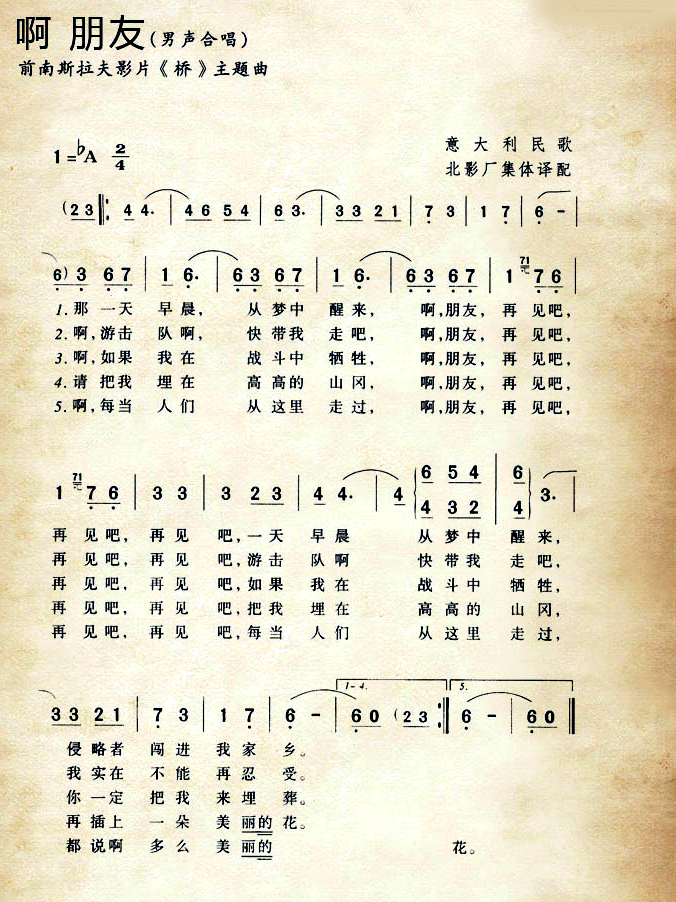 啊 朋友(男声合唱)
前南斯拉夫影片《桥》主题曲
意大利民歌
1=♭A 2/4
北影厂集体译配
(2 3 4 4. 4 6 5 4 6 3. 3 3 2 1 7 3 1 7 6 -
6) 3 6 7 1 6. 6 3 6 7 1 6. 6 3 6 7 1 71 7 6
1.那 一天 早晨, 从 梦中 醒来, 啊,朋友, 再 见吧,
2.啊,游击 队啊, 快 带我 走吧, 啊,朋友, 再 见吧,
3.啊,如果 我在 战斗中 牺牲, 啊,朋友, 再 见吧,
4.请 把我 埋在 高高的 山冈, 啊,朋友, 再 见吧,
5.啊,每当 人们 从 这里 走过, 啊,朋友, 再 见吧,
1 71 7 6 3 3 3 2 3 4 4. 4 6 5 4 6 3.
4 3 2 4
再 见吧, 再见 吧,一天 早晨 从 梦中 醒来,
再 见吧, 再见 吧,游击 队啊 快 带我 走吧,
再 见吧, 再见 吧,如果 我在 战斗中 牺牲,
再 见吧, 再见 吧,把我 埋在 高高的 山冈,
再 见吧, 再见 吧,每当 人们 从 这里 走过,
1-4. 5.
3 3 2 1 7 3 1 7 6 - 6 0 (2 3 6 - 6 0
侵略者 闯进 我家 乡。
我实在 不能 再忍 受。
你一定 把我 来埋 葬。
再插上 一朵 美丽的 花。
都说啊 多么 美丽的 花。